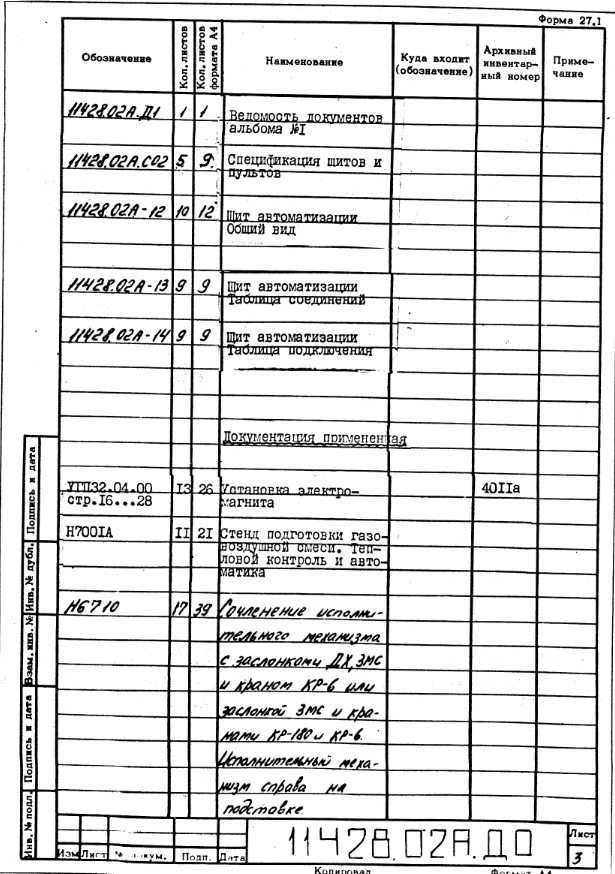 Форма 27.1
Обозначение Кол. листов Кол. листов формата А4 Наименование Куда входит (обозначение) Архивный инвентар- ный номер Приме- чание
11428.02А.Д1 1 1 Ведомость документов
альбома №I
11428.02А.С02 5 9 Спецификация щитов и
пультов
11428.02А-12 10 12 Щит автоматизации
Общий вид
11428.02А-13 9 9 Щит автоматизации
Таблица соединений
11428.02А-14 9 9 Щит автоматизации
Таблица подключения
Документация примененная
УГП32.04.00 I3 26 Установка электро- 40IIа
стр.I6...28 магнита
Н700IА II 2I Стенд подготовки газо-
воздушной смеси. Теп-
ловой контроль и авто-
матика
Н6710 17 39 Сочленение исполни-
тельного механизма
с заслонками ДХ, ЗМС
и краном КР-6 или
заслонкой ЗМС и кра-
нами КР-180 и КР-6.
Исполнительный меха-
низм справа на
подставке
Инв. № подл. Подпись и дата Взам. инв. № Инв. № дубл. Подпись и дата
Изм Лист № докум. Подп. Дата
11428.02А.Д0
Лист
3
Копировал Формат А4